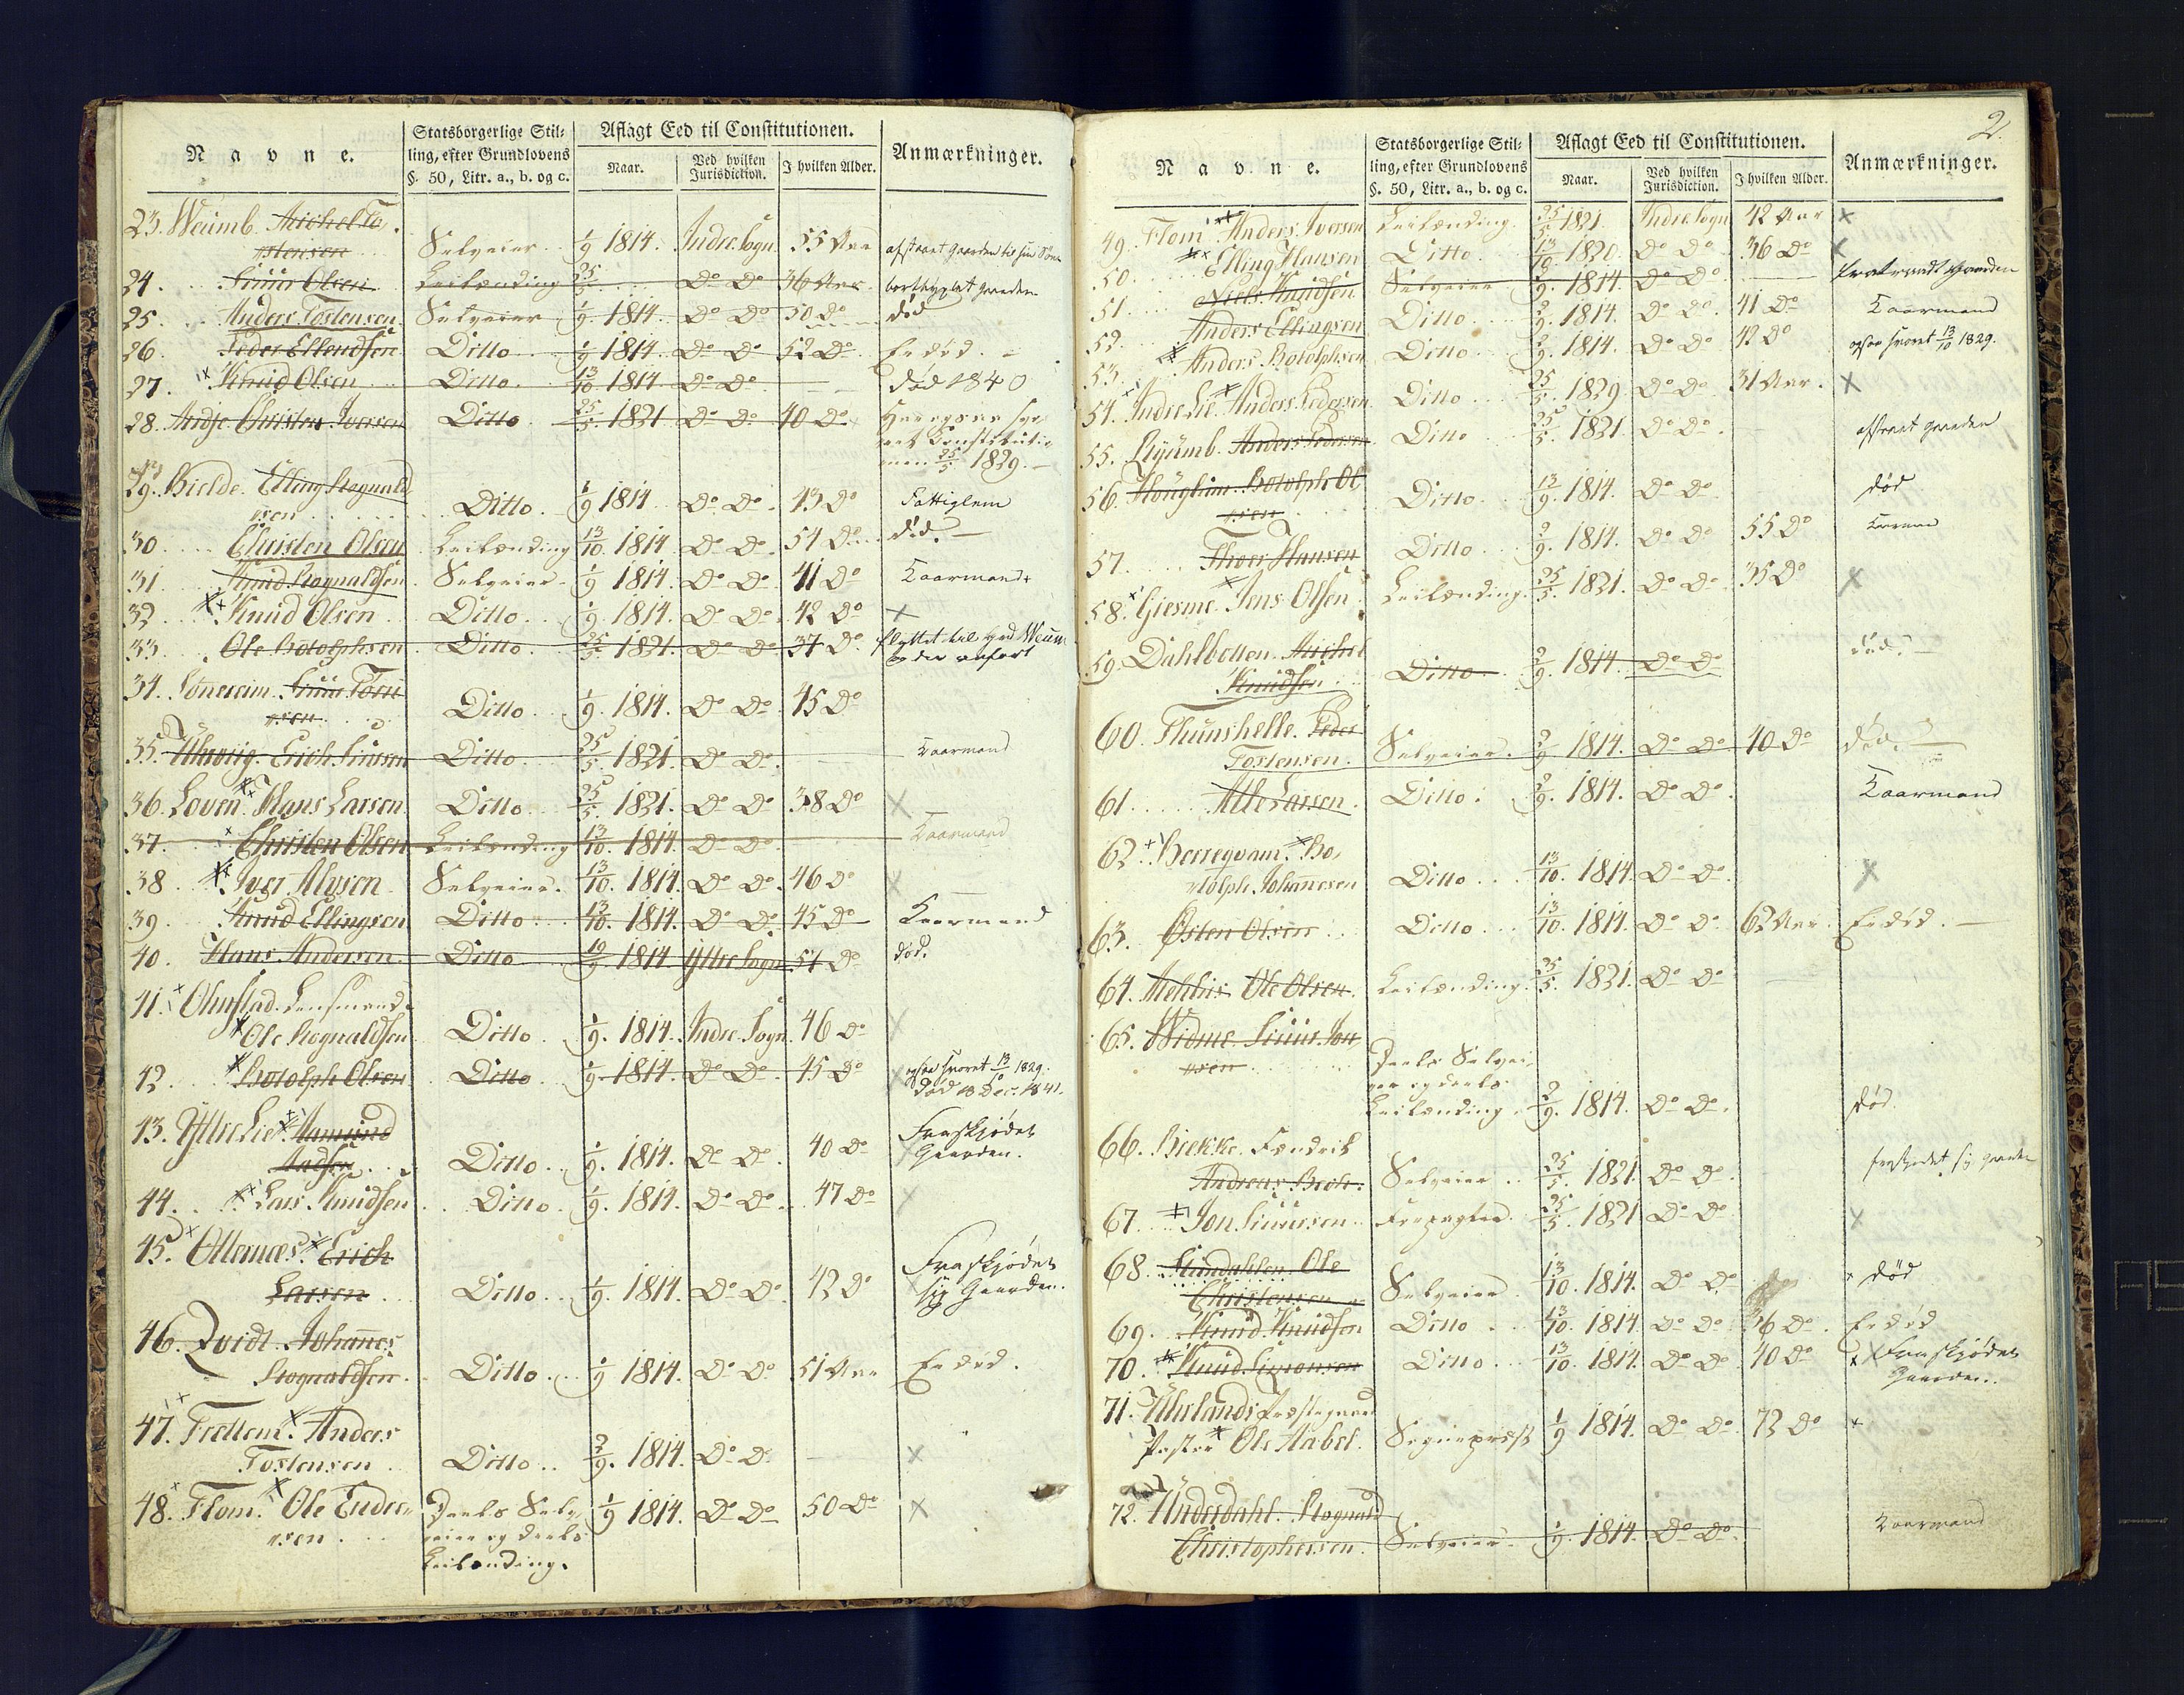 Navne.
Statsborgerlige Stil-
ling, efter Grundlovens
§. 50, Litr. a., b. og c.
Aflagt Eed til Constitutionen.
Naar.
Ved hvilken
Jurisdiction.
I hvilken Alder.
Anmærkninger.
23. Michel To-
stensen Selveier 1/9 1814. Indre Sogn 55 Aar afstaaet Gaarden til sin Søn
24. Siuur Olsen Leilænding 25/5 Do Do 36 Aar bortbyxlet Gaarden
25. Anders Tostensen Selveier 1/9 1814. Do Do 50 Do død
26. Peder Ellendsen Ditto 1/9 1814. Do Do 52 Do Er død.
27. Knud Olsen Ditto 13/10 1814. Do Do død 1840
28. Christen Iversen Ditto 25/5 1821 Do Do 40 Do
25/5 1829.
29. Bielde. Elling Rognald
sen Ditto. 1/9 1814 Do Do 43 Do Fattiglem
30. Christen Olsen Leilænding 13/10. 1814 Do Do 54 Do død.
31. Knud Rognaldsen Selveier 1/9 1814. Do Do 41 Do Kaarmand
32. Knud Olsen Ditto 1/9 1814. Do Do 42 Do ×
33. Ole Botolphsen Ditto 25/5 1821. Do Do 37 Do flyttet til
og der anført
34. Sønereim. Siuur
sen Ditto 1/9. 1814. Do Do 45 Do
35. Erich Siursen Ditto 25/5 1821. Do Do Kaarmand
36. Loven. Hans Larsen Ditto 25/5 1821. Do Do 38 Do ×
37. Christen Olsen Leilænding 13/10. 1814. Do Do Kaarmand
38. Iver Selveier. 13/10. 1814. Do Do 46 Do ×
39. Knud Ellingsen Ditto 13/10. 1814. Do Do 45 Do Kaarmand
40. Hans Andersen Ditto 19/9. 1814 Yttre Sogn 54 Do død.
41. Ohnstad. Lensmand
Ole Rognaldsen Ditto 1/9. 1814. Indre Sogn. 46 Do ×
42. Botolph Olsen Ditto 1/9. 1814. Do Do 45 Do × ogsaa svoret 13/10 1829.
død 18 Dec. 1841.
43. Yttre Lie. Aamund
Ditto 1/9. 1814. Do Do 40 Do Fraskjødet
Gaarden.
44. Lars Knudsen Ditto 1/9. 1814. Do Do 47 Do ×
45. Otternæs. Erich
Larsen Ditto 1/9. 1814. Do Do 42 Do Fraskjødet
sig Gaarden.
46. Johannes
Rognaldsen Ditto 1/9 1814. Do Do 51 Aar Er død.
47. Frettem. Anders
Tostensen Ditto 2/9. 1814. Do Do ×
48. Flom. Ole Endre-
sen Deels Selv-
eier og deels
Leilænding. 1/9 1814. Do Do 50 Do ×
2.
Navne.
Statsborgerlige Stil-
ling, efter Grundlovens
§. 50, Litr. a., b. og c.
Aflagt Eed til Constitutionen.
Naar.
Ved hvilken
Jurisdiction.
I hvilken Alder.
Anmærkninger.
49. Flom. Anders Iversen Leilænding. 25/5 1821. Indre Sogn 42 Aar ×
50. Elling Hansen Ditto 13/10 1820. Do Do 36 Do ×
51. Niels Knudsen Selveier 2/9. 1814. Do Do Gaarden
52. Anders Ellingsen Ditto 2/9. 1814. Do Do 41 Do Kaarmand
53. Anders Botolphsen Ditto 2/9. 1814. Do Do 42 Do ogsaa svoret 13/10 1829.
54. Indre Lie. Anders Pedersen Ditto 25/5. 1829. Do Do 31 Aar. ×
55. Ryumb. Anders Pedersen Ditto 25/5. 1821. Do Do afstaaet Gaarden
56. Houglum. Botolph Ol
sen Ditto 13/9. 1814. Do Do død
57. Hansen Ditto 2/9. 1814. Do Do 55 Do
58. Giesme. Jens Olsen Leilænding. 25/5. 1821. Do Do 35 Do ×
59. Dahlbotten. Michel
Knudsen Ditto 2/9. 1814. Do Do død.
60. Thunshelle. Peder
Tostensen. Selveier. 2/9 1814. Do Do 40 Do død.
61. Larsen Ditto. 2/9. 1814. Do Do Kaarmand
62. Berreqvam. Bo-
tolph Johannesen Ditto 13/10. 1814. Do Do ×
63. Østen Olsen Ditto 13/10. 1814. Do Do 62 Aar. Er død.
64. Mehlhus Ole Olsen. Leilænding. 25/5. 1821. Do Do
65. Widme. Siuur Jon
sen Deels Selvei-
er og deels
Leilænding. 2/9. 1814. Do Do død.
66. Brekke. Fændrik
Andreas Bech. Selveier 25/5. 1821. Do Do fraskjødet sig Gaarden
67. Jon Siursen Forpagter. 25/5. 1821 Do Do ×
68. Ole
Christensen Selveier 13/10. 1814. Do Do × død
69. Knud Knudsen Ditto 13/10. 1814. Do Do 36 Do Er død
70. Knud Simonsen Ditto 13/10. 1814. Do Do 40 Do × Fraskjødet
Gaarden.
71. Uhrlands Præstegaard
Pastor Ole Aabel. Sognepræst 1/9 1814. Do Do 72 Do ×
72. Underdahl. Rognald
Christophersen. Selveier. 1/9. 1814. Do Do Kaarmand